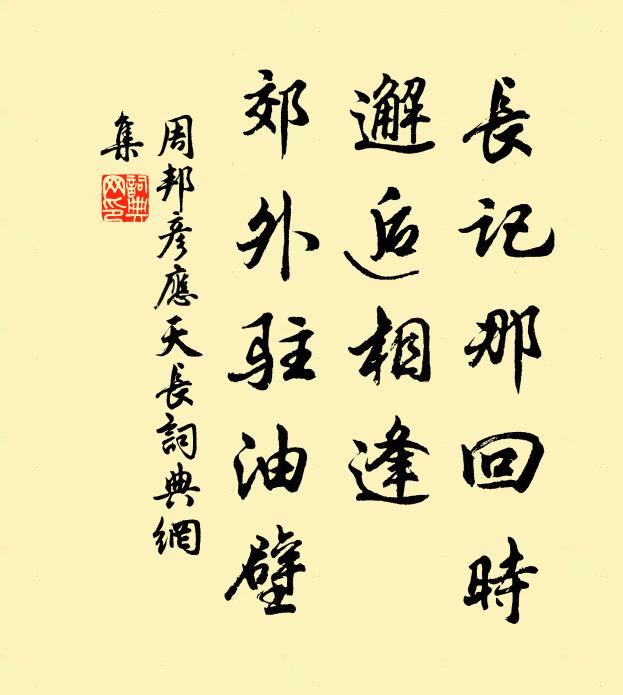 長記那回時
邂逅相逢
郊外駐油壁
周邦彥應天長詞典網
集
詞典
網印